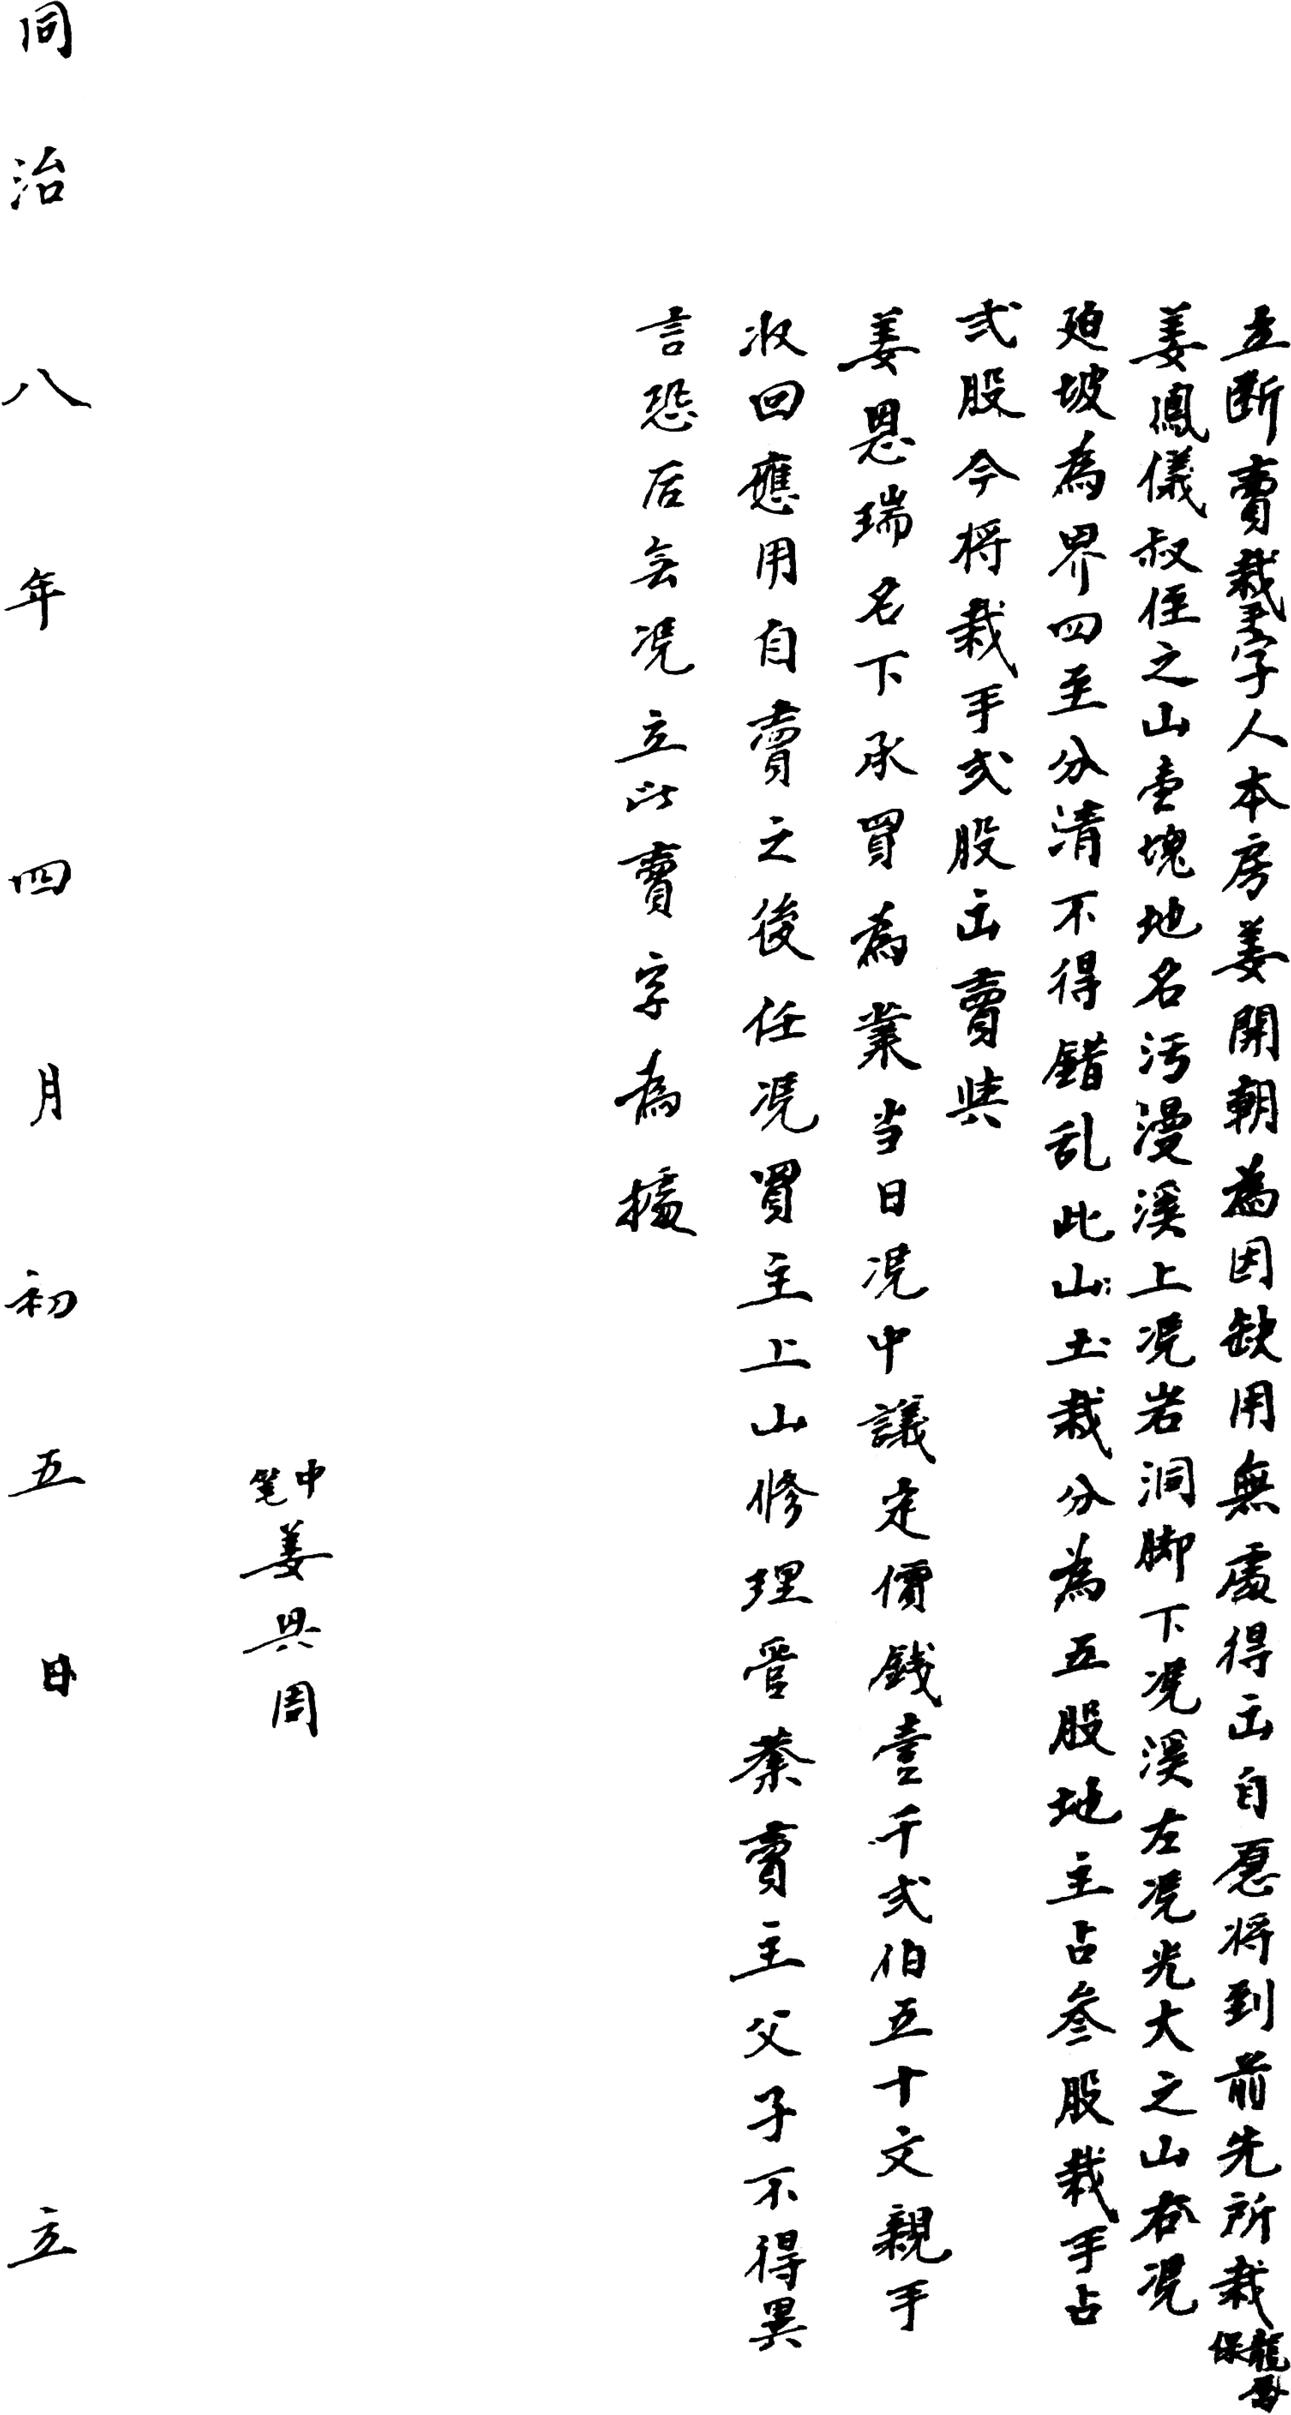 立断賣栽手字人本房姜開朝為因缺用無處得出自愿将到前先所栽保龍
姜鳳儀叔侄之山壹塊地名污漫溪上凴岩洞脚下凴溪左凴光大之山右凴
廻坡為界四至分清不得錯乱此山土栽分為五股地主占叁股栽手占
弍股今将栽手弍股出賣與
姜恩瑞名下承買為業当日凴中議定價錢壹千弍伯五十文親手
收回應用自賣之後任凴買主上山修理管業賣主父子不得異
言恐后無凴立此賣字為據
中筆姜興周
同治八年四月初五日立